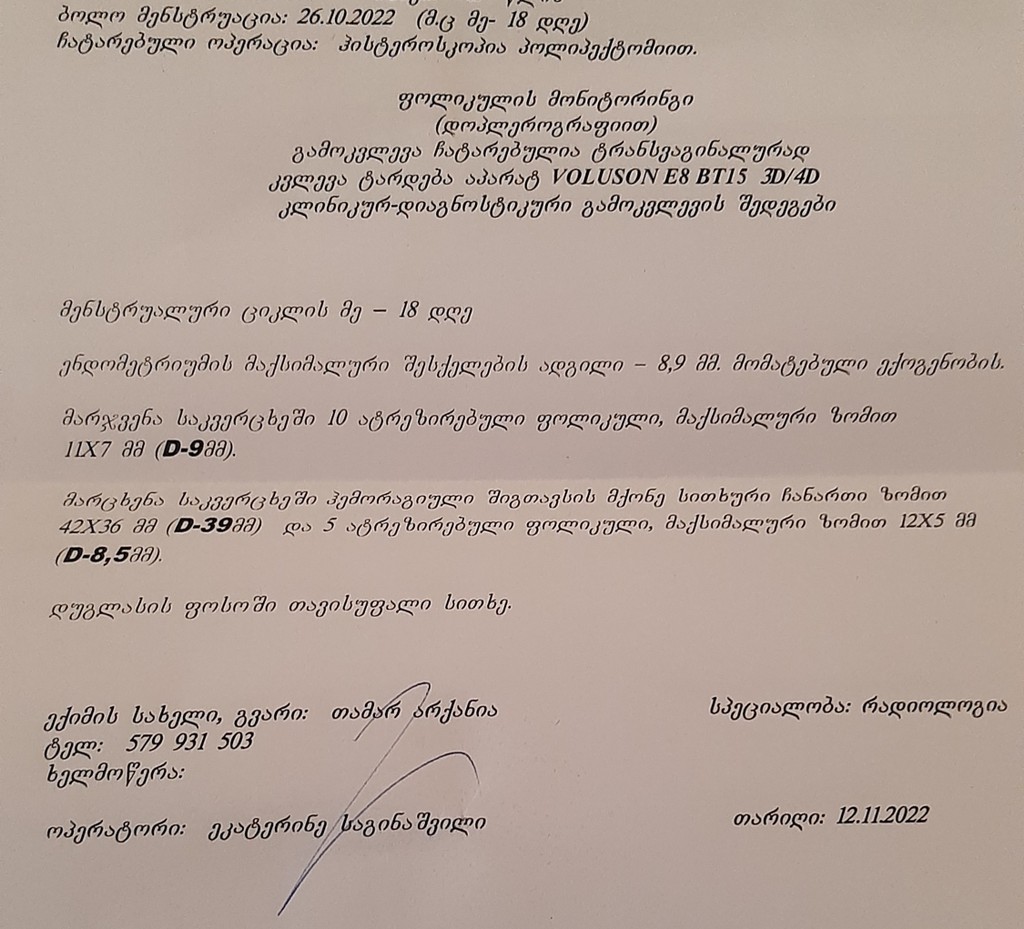 ბოლო მენსტრუაცია: 26.10.2022 (მ.ც მე- 18 დღე)
ჩატარებული ოპერაცია: ჰისტეროსკოპია პოლიპექტომიით.
ფოლიკულის მონიტორინგი
(დოპლეროგრაფიით)
გამოკვლევა ჩატარებულია ტრანსვაგინალურად
კვლევა ტარდება აპარატ VOLUSON E8 BT15 3D/4D
კლინიკურ-დიაგნოსტიკური გამოკვლევის შედეგები
მენსტრუალური ციკლის მე – 18 დღე
ენდომეტრიუმის მაქსიმალური შესქელების ადგილი – 8,9 მმ. მომატებული ექოგენობის.
მარჯვენა საკვერცხეში 10 ატრეზირებული ფოლიკული, მაქსიმალური ზომით
11X7 მმ (D-9მმ).
მარცხენა საკვერცხეში ჰემორაგიული შიგთავსის მქონე სითხური ჩანართი ზომით
42X36 მმ (D-39მმ) და 5 ატრეზირებული ფოლიკული, მაქსიმალური ზომით 12X5 მმ
(D-8,5მმ).
დუგლასის ფოსოში თავისუფალი სითხე.
ექიმის სახელი, გვარი: თამარ არქანია
სპეციალობა: რადიოლოგია
ტელ: 579 931 503
ხელმოწერა:
ოპერატორი: ეკატერინე საგინაშვილი
თარიღი: 12.11.2022